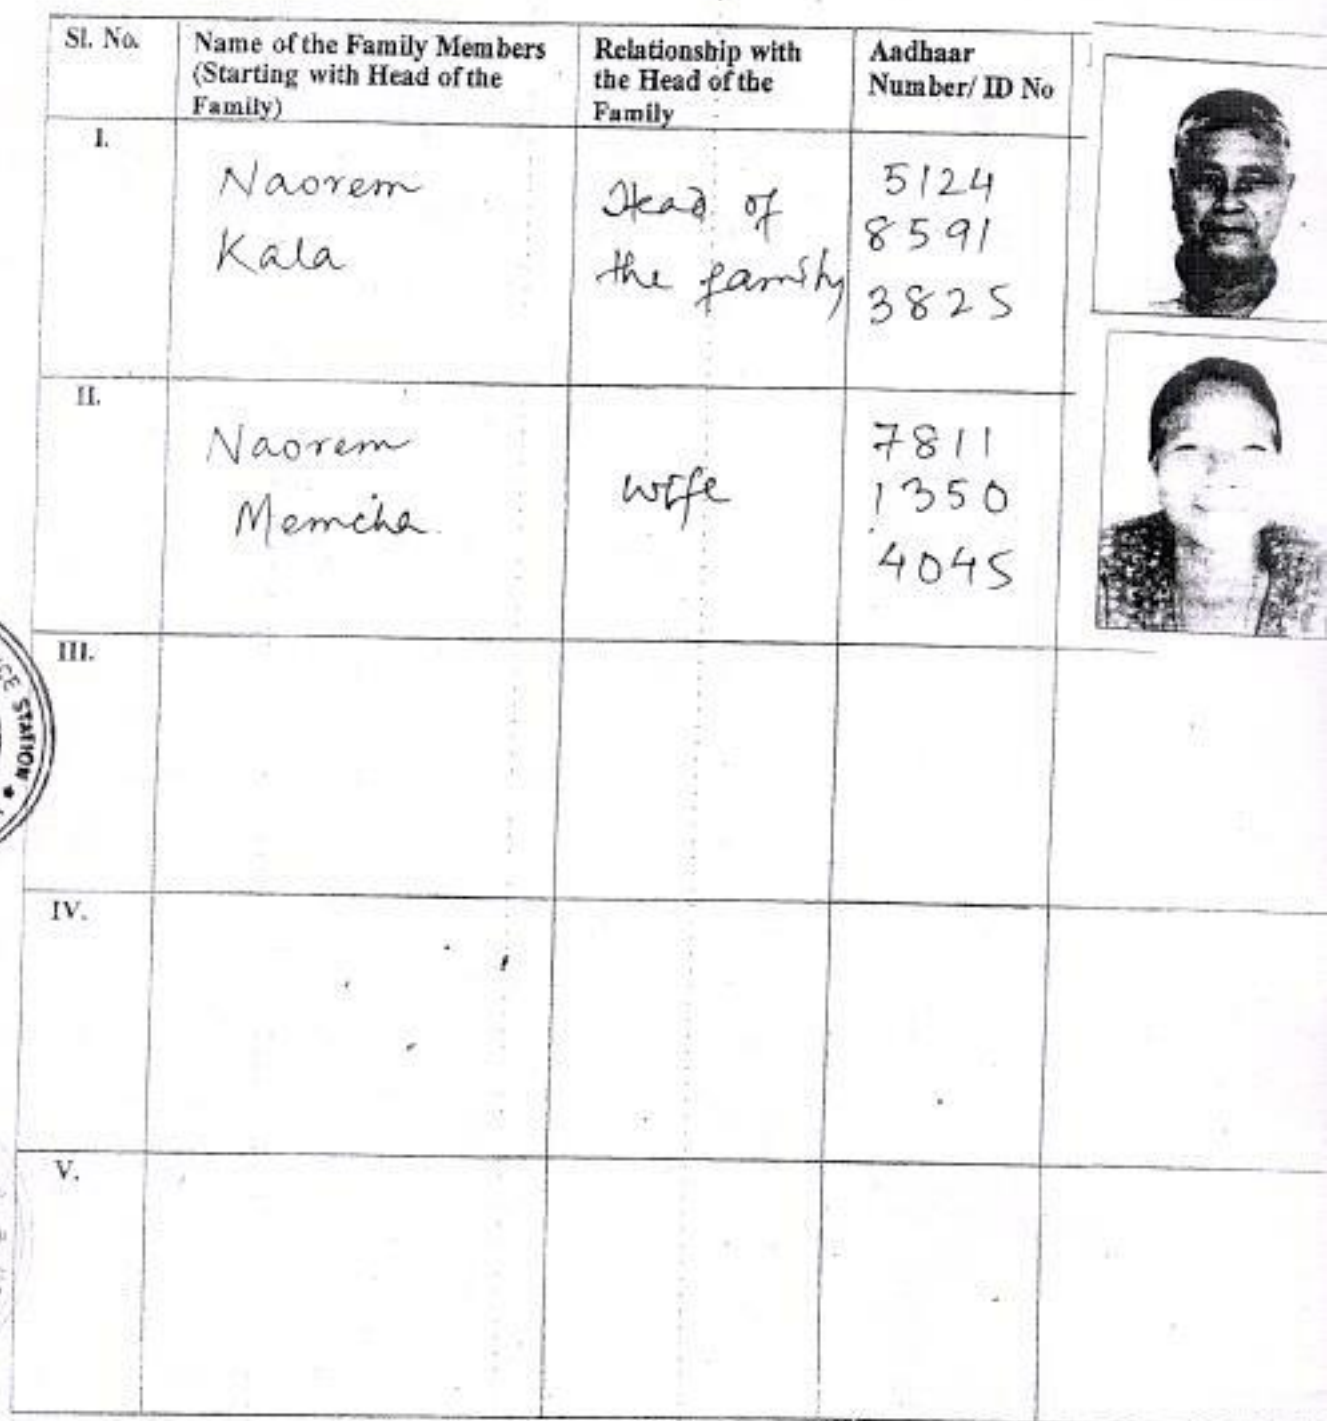 Sl. No.
Name of the Family Members
(Starting with Head of the
Family)
Relationship with
the Head of the
Family
Aadhaar
Number/ ID No
I.
Naorem
Kala
Head of
the family
5124
8591
3825
II.
Naorem
Memcha
wife
7811
1350
4045
III.
STATION
IV.
V.